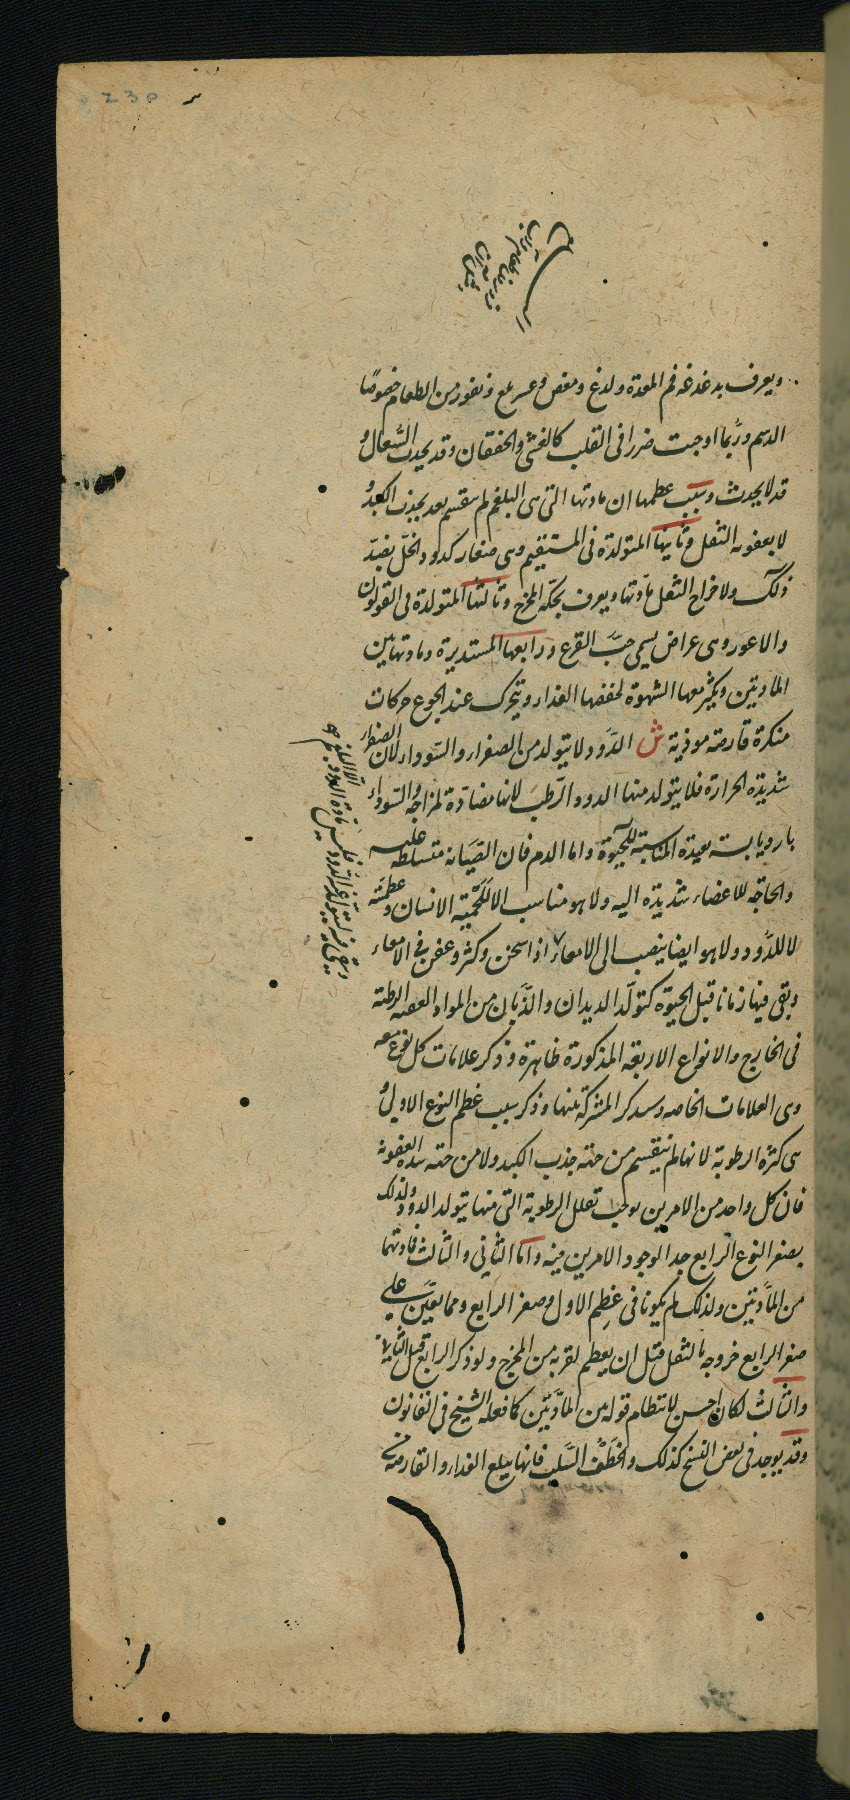 ويعرف بدغدغة فم المعدة ولذع ومغص وعسر بلع ونفور من الطعام خصوصًا
الدسم وربما اوجبت ضررا فى القلب كالغشى والخفقان وقد يحدث السعال و
قد لا يحدث وسبب عظمها ان مادتها التى هى البلغم لم ينقسم بعد بجذب الكبد و
لا بعفونة الثفل وثانيها المتولدة فى المستقيم وهى صغار كدود الخل بضد
ذلك ولاخراج الثفل مادتها ويعرف بحكة المخرج وثالثها المتولدة فى القولون
والاعور وهى عراض يسمى حب القرع ورابعها المستديرة ومادتها بين
المادتين ويكثر معها الشهوة لخطفها الغذاء ويتحرك عند الجوع حركات
منكرة قارصة موذية ش الدود لا يتولد من الصفراء والسوداء لان الصفراء
شديدة الحرارة فلا يتولد منها الدود الرطب لانها مضادة لمزاجه والسوداء
باردة يابسة بعيدة المناسبة للحيوة واما الدم فان الصيانة متسلطة عليه
والحاجة للاعضاء شديدة اليه ولا هو مناسب الا للحمية الانسان وعظمته
لا للدود ولا هو ايضا ينصب الى الامعاء اذا سخن وكثر وعفن فى الامعاء
وبقى فيها زمانا قبل الحيوة كتولد الديدان والذبان من المواد العفنة الرطبة
فى الخارج والانواع الاربعة المذكورة ظاهرة وذكر علامات كل نوع معه
وهى العلامات الخاصة وسيذكر المشتركة بينها وذكر سبب عظم النوع الاول و
هى كثرة الرطوبة لانها لم ينقسم من جهة جذب الكبد ولا من جهة شدة العفونة
فان كل واحد من الامرين يوجب تقلل الرطوبة التى منها يتولد الدود ولذلك
يصغر النوع الرابع جدا لوجود الامرين فيه واما الثانى والثالث فمادتهما
من المادتين ولذلك لم يكونا فى عظم الاول وصغر الرابع ومما يعين على
صغر الرابع خروجه بالثفل قبل ان يعظم لقربه من المخرج ولو ذكر الرابع قبل الثانى
والثالث لكان احسن لانتظام قوله من المادتين كما فعله الشيخ فى القانون
وقد يوجد فى بعض النسخ كذلك والخطف السلب فانها يبلع الغذاء والقارصة